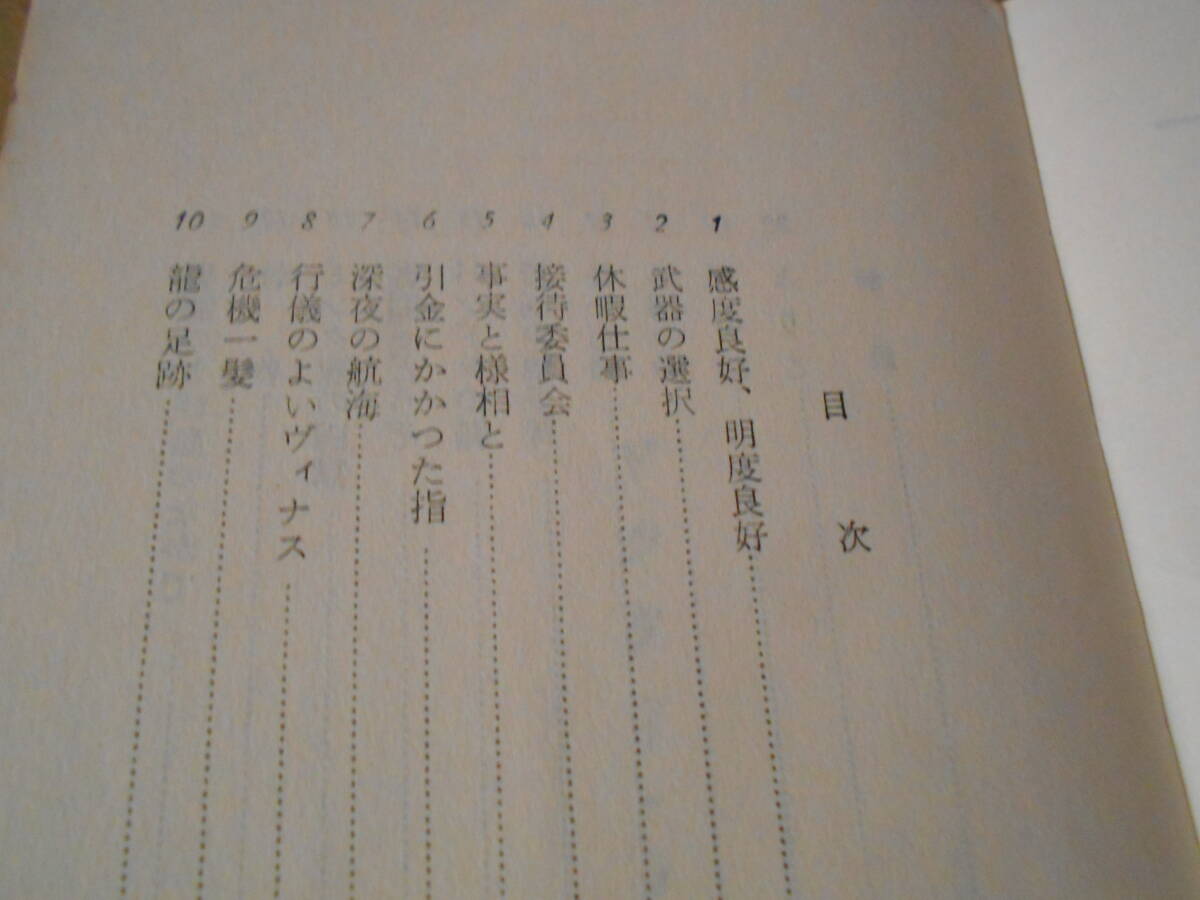 目次
1 感度良好、明度良好
2 武器の選択
3 休暇仕事
4 接待委員会
5 事実と様相と
6 引金にかかつた指
7 深夜の航海
8 行儀のよいヴィナス
9 危機一髪
10 龍の足跡